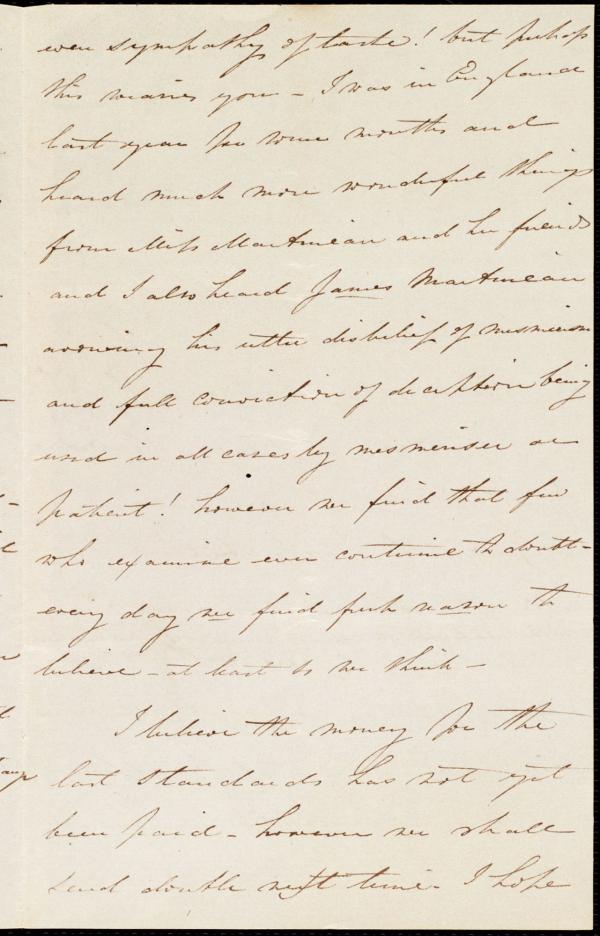 even sympathy of taste! but perhaps
this wearies you - I was in England
last year for some months and
heard much more wonderful things
from Miss Martineau and her friends
and I also heard James Martineau
avowing his utter disbelief of mesmerism
and full conviction of deception being
used in all cases by mesmeriser or
patient! however we find that few
who examine ever continue to doubt -
every day we find fresh reason to
believe - at least so we think -
I believe the money for the
last Standards has not yet
been paid - however we shall
send double next time. I hope